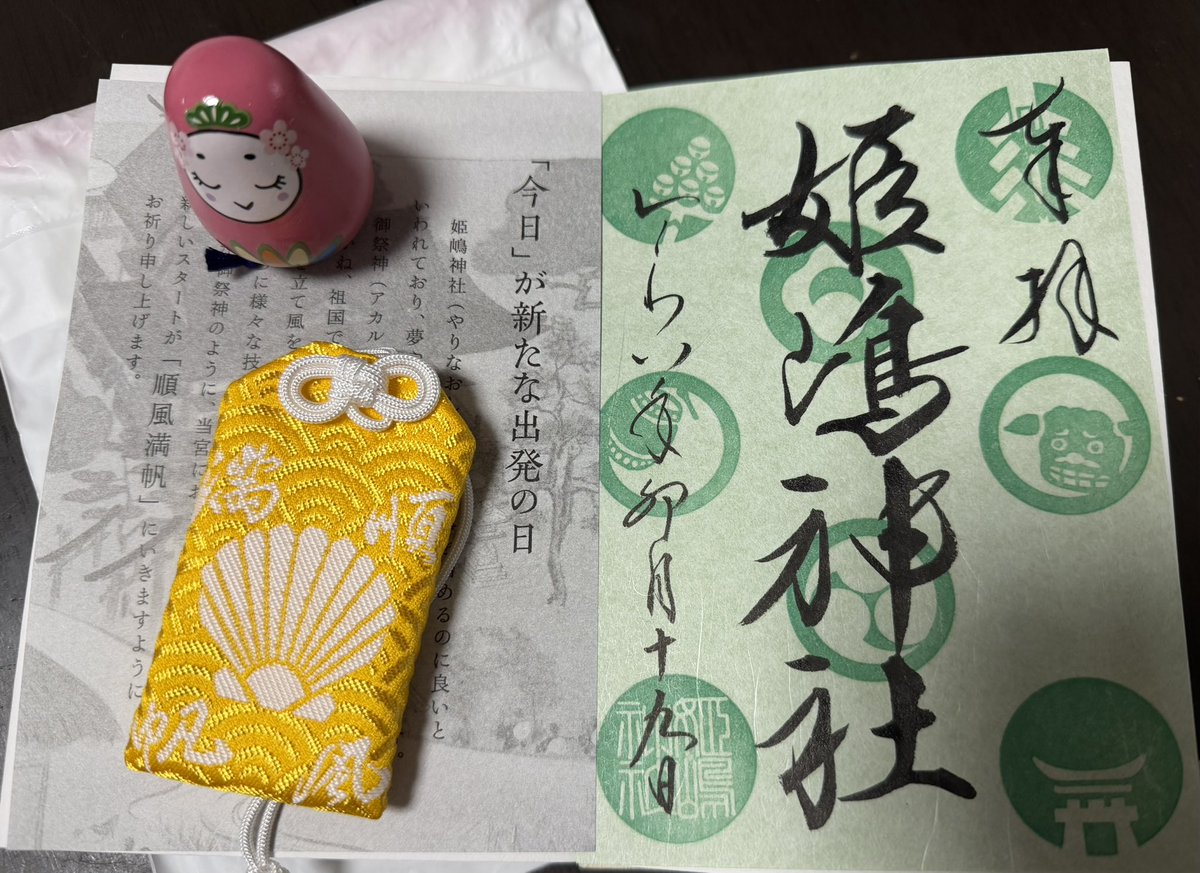 奉拝
姫嶋神社
年卯月十九日
姫嶋
神社
「今日」が新たな出発の日
姫嶋神社（やりなお めるのに良いと
いわれており、夢
御祭神（アカル
ね、祖国で
立て風を
に様々な技
御祭神のように、当宮にお
新しいスタートが「順風満帆」にいきますように
お祈り申し上げます。
順風
満帆